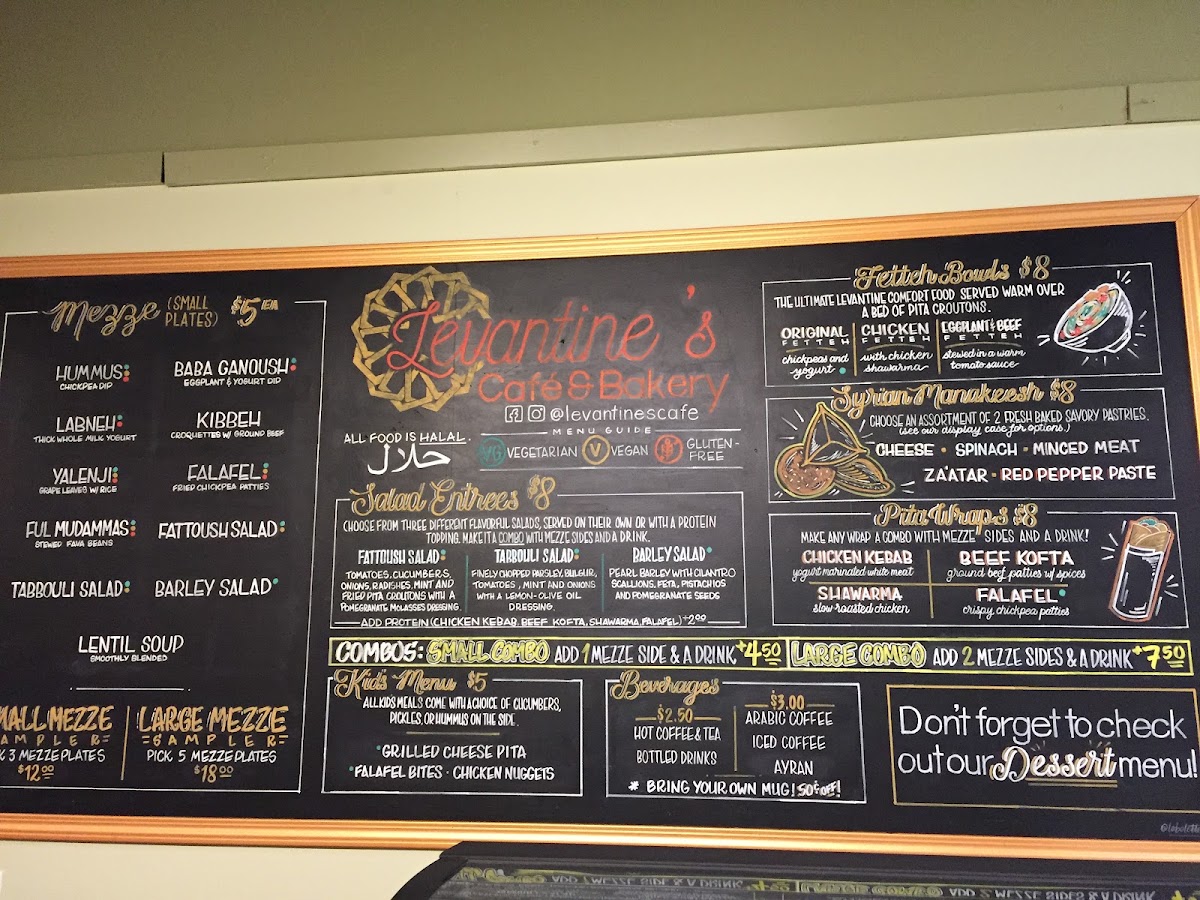 Mezze (SMALL PLATES) $5 EA
HUMMUS
CHICKPEA DIP
BABA GANOUSH
EGGPLANT & YOGURT DIP
LABNEH
THICK WHOLE MILK YOGURT
KIBBEH
CROQUETTES W/ GROUND BEEF
YALENJI
GRAPE LEAVES W/ RICE
FALAFEL
FRIED CHICKPEA PATTIES
FUL MUDAMMAS
STEWED FAVA BEANS
FATTOUSH SALAD
TABBOULI SALAD
BARLEY SALAD
LENTIL SOUP
SMOOTHLY BLENDED
MALL MEZZE
AMPLER
K 3 MEZZE PLATES
$12.00
LARGE MEZZE
SAMPLER
PICK 5 MEZZE PLATES
$18.00
Levantine's
Café & Bakery
@levantinescafe
MENU GUIDE
ALL FOOD IS HALAL.
حلال
VG VEGETARIAN V VEGAN GLUTEN-
FREE
Salad Entrees $8
CHOOSE FROM THREE DIFFERENT FLAVORFUL SALADS, SERVED ON THEIR OWN OR WITH A PROTEIN
TOPPING. MAKE IT A COMBO WITH MEZZE SIDES AND A DRINK.
FATTOUSH SALAD
TOMATOES, CUCUMBERS,
ONIONS, RADISHES, MINT AND
FRIED PITA CROUTONS WITH A
POMEGRANATE MOLASSES DRESSING.
TABBOULI SALAD
FINELY CHOPPED PARSLEY, BULGUR,
TOMATOES, MINT AND ONIONS
WITH A LEMON-OLIVE OIL
DRESSING.
BARLEY SALAD
PEARL BARLEY WITH CILANTRO
SCALLIONS, FETA, PISTACHIOS
AND POMEGRANATE SEEDS
ADD PROTEIN (CHICKEN KEBAB, BEEF KOFTA, SHAWARMA, FALAFEL) +2.00
Fetteh Bowls $8
THE ULTIMATE LEVANTINE COMFORT FOOD. SERVED WARM OVER
A BED OF PITA CROUTONS.
ORIGINAL
FETTEH
chickpeas and
yogurt
CHICKEN
FETTEH
with chicken
shawarma
EGGPLANT & BEEF
FETTEH
stewed in a warm
tomato sauce
Syrian Manakeesh $8
CHOOSE AN ASSORTMENT OF 2 FRESH BAKED SAVORY PASTRIES.
(see our display case for options.)
CHEESE • SPINACH • MINCED MEAT
ZA'ATAR • RED PEPPER PASTE
Pita Wraps $8
MAKE ANY WRAP A COMBO WITH MEZZE SIDES AND A DRINK!
CHICKEN KEBAB
yogurt marinated white meat
BEEF KOFTA
ground beef patties w/ spices
SHAWARMA
slow-roasted chicken
FALAFEL
crispy chickpea patties
COMBOS: SMALL COMBO ADD 1 MEZZE SIDE & A DRINK +4.50 LARGE COMBO ADD 2 MEZZE SIDES & A DRINK +7.50
Kid's Menu $5
ALL KIDS MEALS COME WITH A CHOICE OF CUCUMBERS,
PICKLES, OR HUMMUS ON THE SIDE.
GRILLED CHEESE PITA
FALAFEL BITES • CHICKEN NUGGETS
Beverages
$2.50
HOT COFFEE & TEA
BOTTLED DRINKS
$3.00
ARABIC COFFEE
ICED COFFEE
AYRAN
* BRING YOUR OWN MUG! 50¢ off!
Don't forget to check
out our Dessert menu!